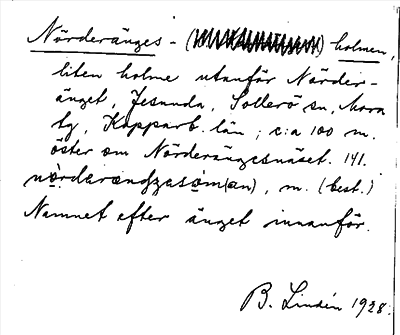 Nörderänges - holmen,
liten holme utanför Nörder-
änget, Jesunda, Sollerö sn, Mora
tg, Kopparb. län; c:a 100 m.
öster om Nörderängesnäset. 141.
m. (best.)
Namnet efter änget innanför.
B. Lindén 1928.